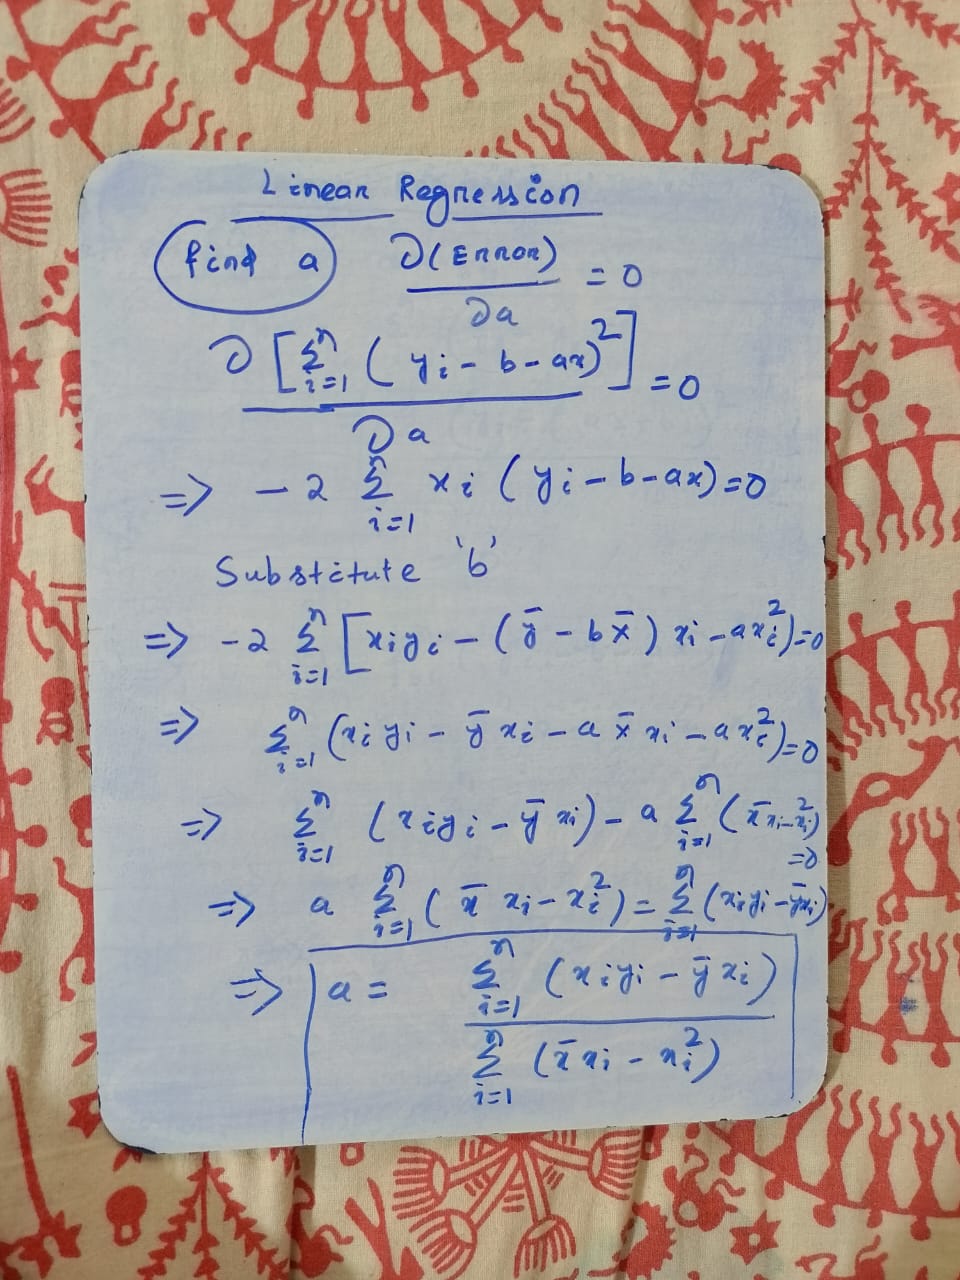 Linear Regression
find a ∂(Error)/∂a = 0
∂[Σ_{i=1}^{n} (y_i - b - ax)^2]/∂a = 0
⇒ -2 Σ_{i=1}^{n} x_i (y_i - b - ax) = 0
Substitute 'b'
⇒ -2 Σ_{i=1}^{n} [x_i y_i - (ȳ - b x̄) x_i - a x_i^2) = 0
⇒ Σ_{i=1}^{n} (x_i y_i - ȳ x_i - a x̄ x_i - a x_i^2) = 0
⇒ Σ_{i=1}^{n} (x_i y_i - ȳ x_i) - a Σ_{i=1}^{n} (x̄ x_i - x_i^2) = 0
⇒ a Σ_{i=1}^{n} (x̄ x_i - x_i^2) = Σ_{i=1}^{n} (x_i y_i - ȳ x_i)
⇒ a = Σ_{i=1}^{n} (x_i y_i - ȳ x_i) / Σ_{i=1}^{n} (x̄ x_i - x_i^2)